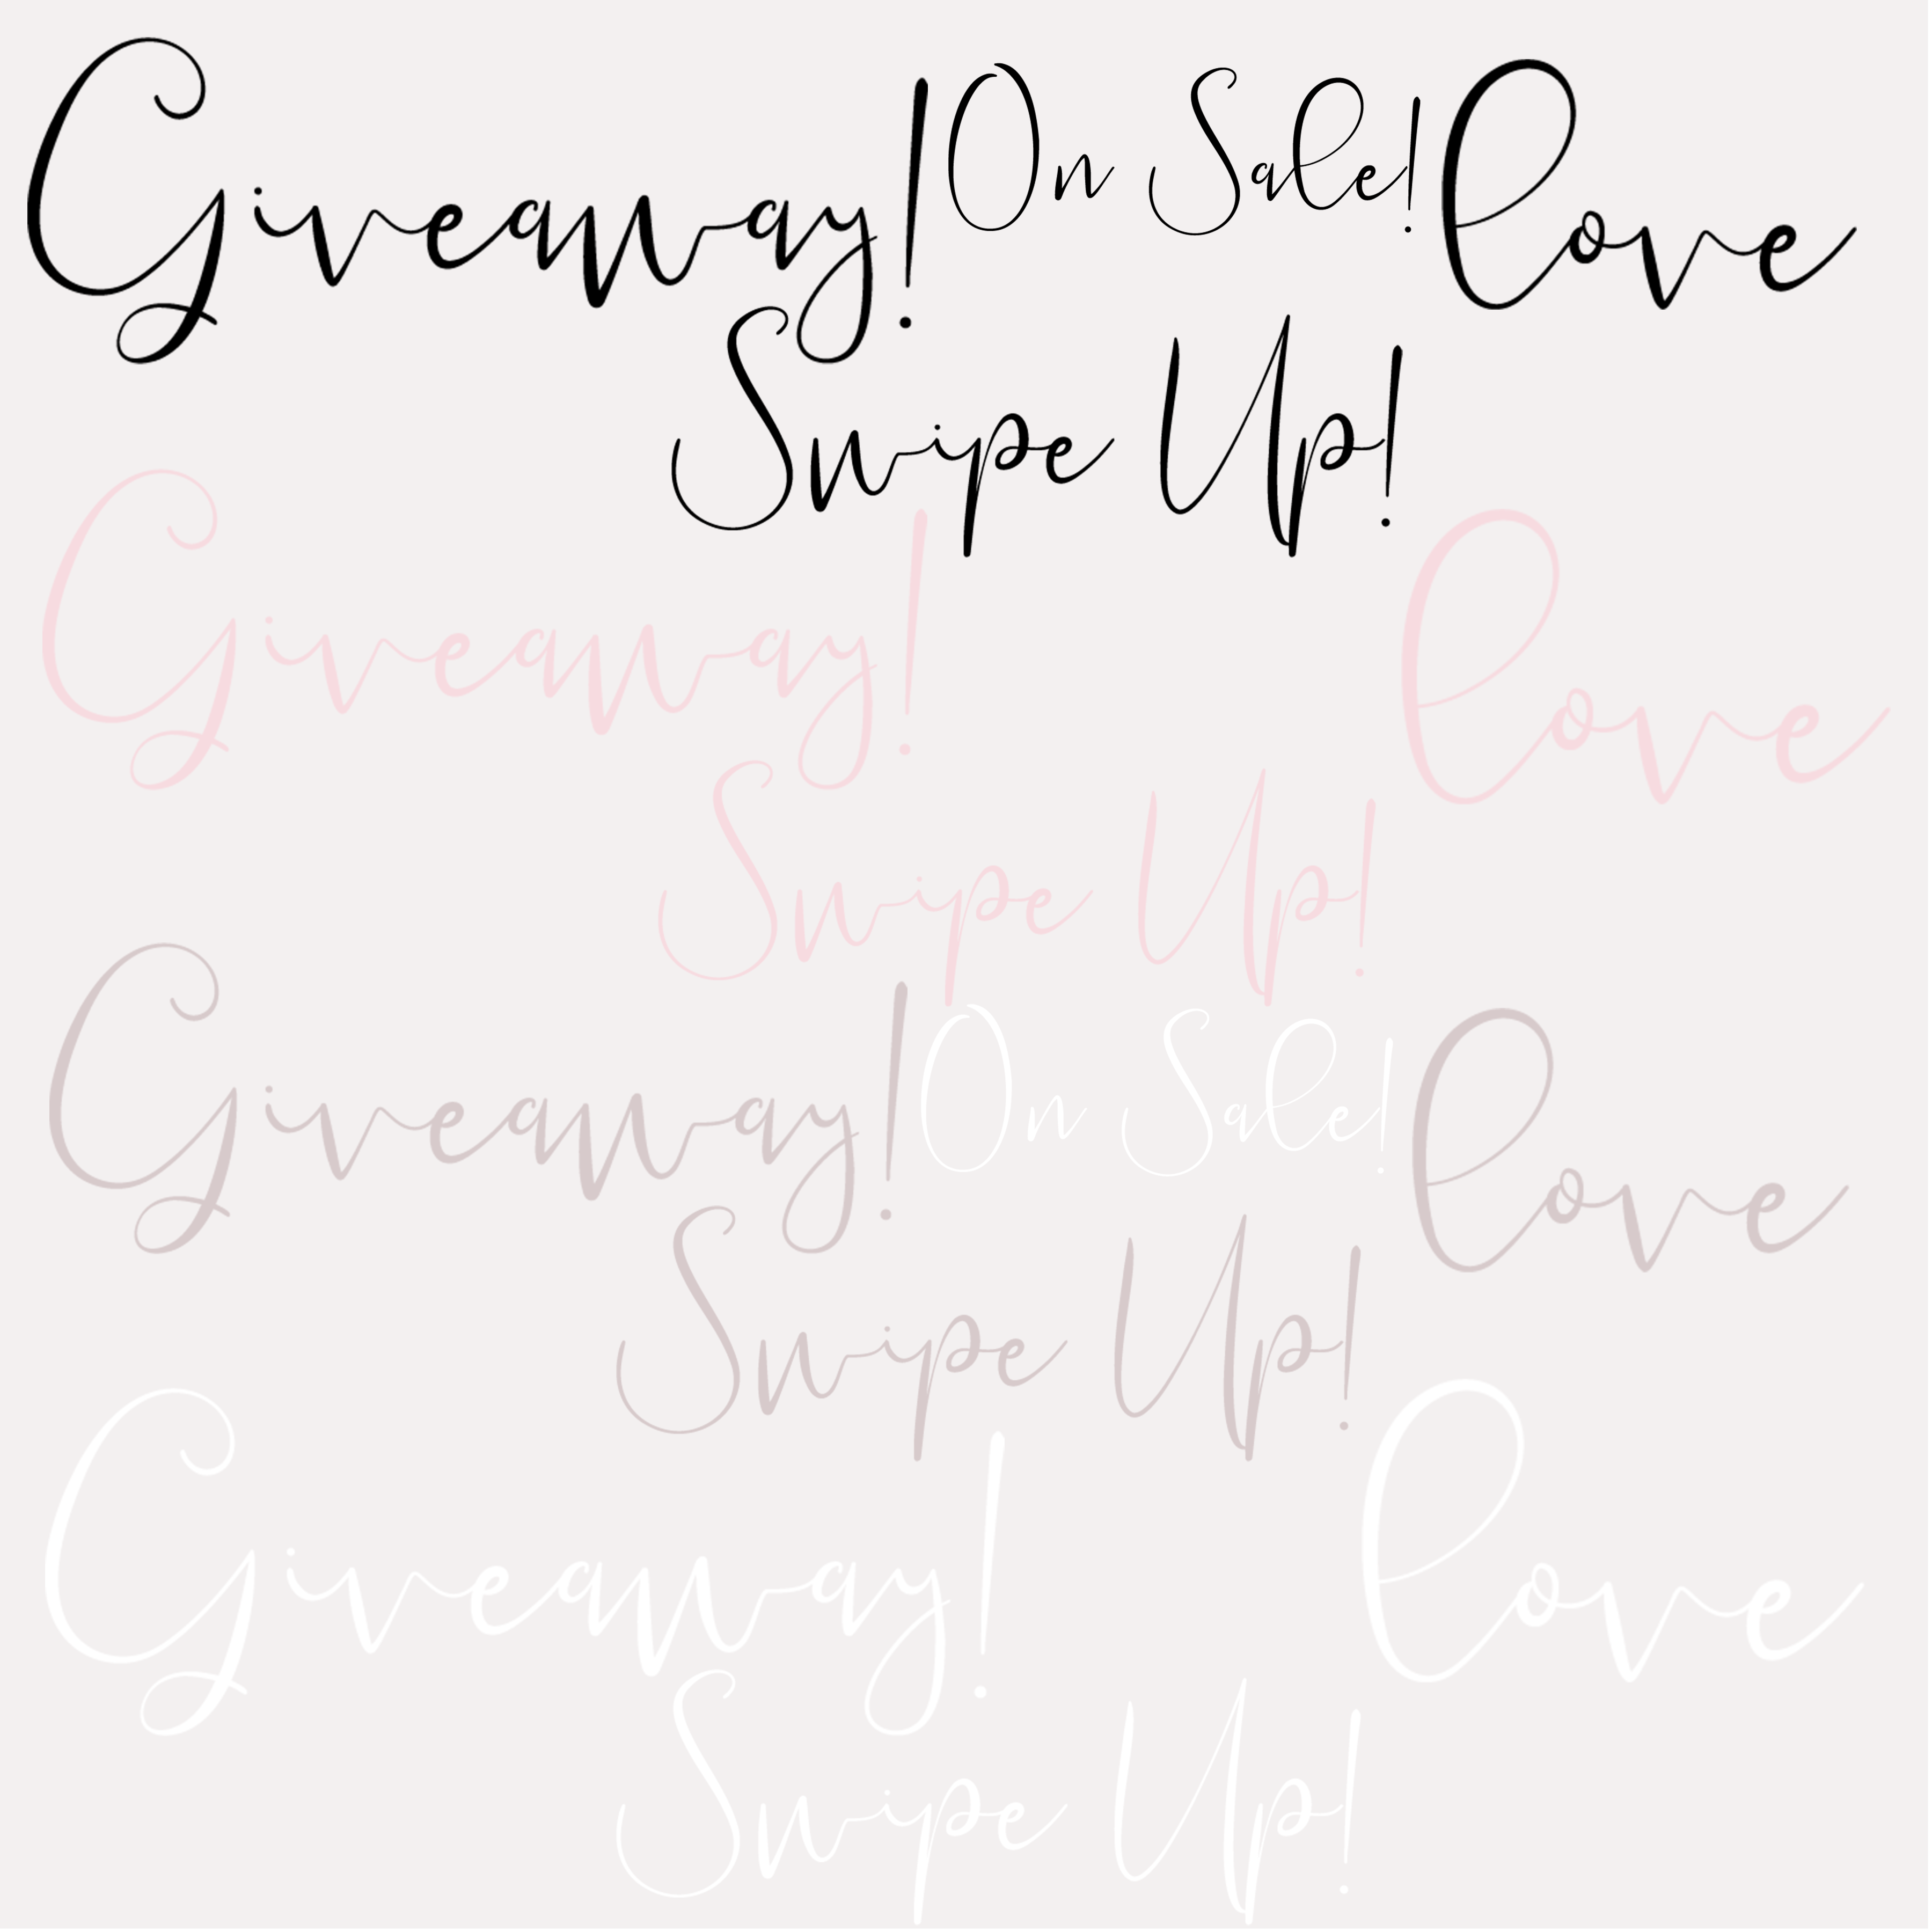 Giveaway! On Sale! love
Swipe Up!
Giveaway! love
Swipe Up!
Giveaway! On Sale! love
Swipe Up!
Giveaway! love
Swipe Up!